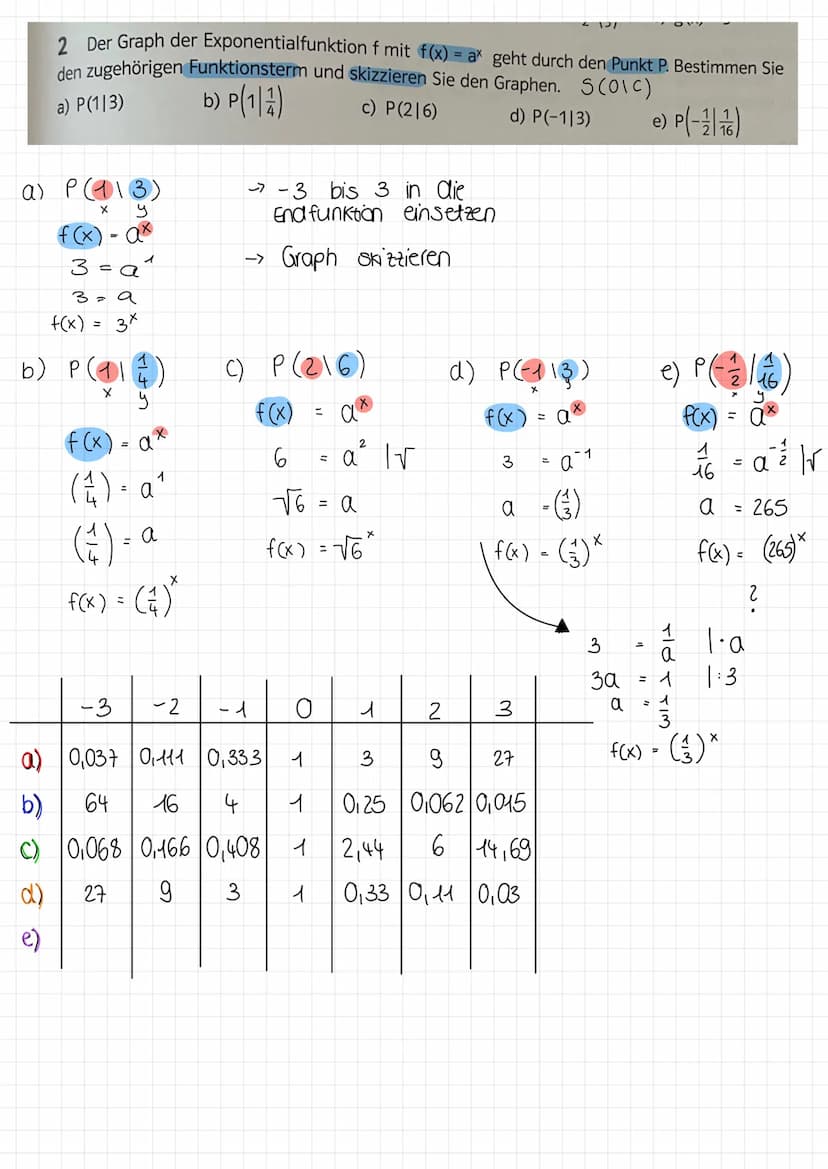 2 Der Graph der Exponentialfunktion f mit f(x) = aˣ geht durch den Punkt P. Bestimmen Sie
den zugehörigen Funktionsterm und skizzieren Sie den Graphen. S(0|C)
a) P(1|3) b) P(1|1/4) c) P(2|6) d) P(−1|3) e) P(−1/2|1/16)
a) P(1|3)
x y
f(x) = aˣ
3 = a¹
3 = a
f(x) = 3ˣ
→ -3 bis 3 in die
Endfunktion einsetzen
→ Graph skizzieren
b) P(1|1/4)
x y
f(x) = aˣ
(1/4) = a¹
(1/4) = a
f(x) = (1/4)ˣ
c) P(2|6)
f(x) = aˣ
6 = a² |√
√6 = a
f(x) = √6ˣ
d) P(-1|3)
x y
f(x) = aˣ
3 = a⁻¹
a = (1/3)
f(x) = (1/3)ˣ
3 = 1/a |·a
3a = 1 |:3
a = 1/3
f(x) = (1/3)ˣ
e) P(-1/2|1/16)
x y
f(x) = aˣ
1/16 = a^(-1/2) |√
a = 265
f(x) = (265)ˣ
?
-3 -2 -1 0 1 2 3
a) 0,037 0,111 0,333 1 3 9 27
b) 64 16 4 1 0,25 0,062 0,015
c) 0,068 0,166 0,408 1 2,44 6 14,69
d) 27 9 3 1 0,33 0,11 0,03
e)